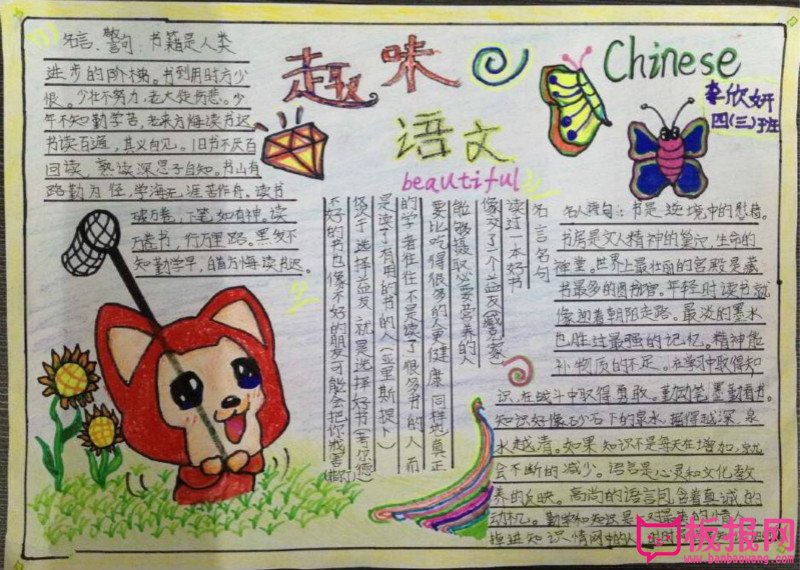 趣味
语文
beautiful
Chinese
李欣妍
四(三)班
名言、警句：书籍是人类
进步的阶梯。书到用时方少
恨。少壮不努力，老大徒伤悲。少
年不知勤学苦，老来方悔读书迟
书读百遍，其义自见。旧书不厌百
回读，熟读深思子自知。书山有
路勤为径，学海无涯苦作舟。读书
破万卷，下笔如有神。读
万卷书，行万里路。黑发不
知勤学早，白首方悔读书迟。
名言名句
读过一本好书
像交了一个益友(臧克家)
能够摄取必要营养的人
要比吃得很多的人更健康，同样地，真正
的学者往往不是读了很多书的人，而
是读了有用的书的人(亚里斯提卜)
选择益友，就是选择好书
不好的书也像不好的朋友可能会把你戕害
名人语句：书是逆境中的慰藉。
书房是文人精神的巢穴，生命的
禅堂。世界上最壮丽的宫殿是藏
书最多的图书馆。年轻时读书就
像迎着朝阳走路。最淡的墨水
也胜过最强的记忆。精神能
补物质的不足。在学习中取得知
识，在战斗中取得勇敢。勤动笔墨勤看书。
知识好像砂石下的泉水，掘得越深，泉
水越清。如果知识不是每天在增加，就
会不断的减少。语言是心灵和文化教
养的反映。高尚的语言包含着真诚的
动机。勤学和知识是一对最美的情人
掉进知识情网中的人
板报网
www.banbaowang.com